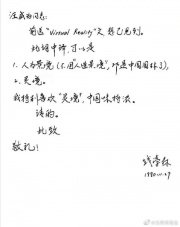 汪成为同志:
前送“Virtual Reality”文想已见到。
此词中译,可以是
1. 人为景境(不用“人造景境”,那是中国园林了),
2. 灵境。
我特别喜欢“灵境”,中国味特浓。
请酌。
此致
敬礼!
钱学森
1990.11.27